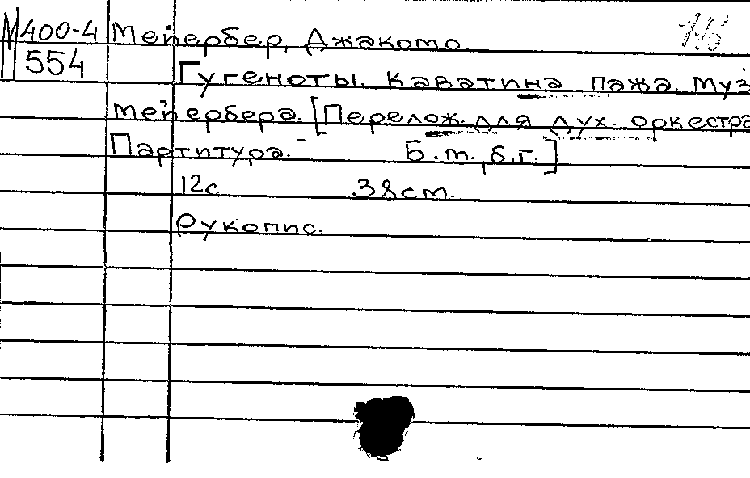 М400-4 Мейербер, Джакомо.
554
Гугеноты. Каватина пажа. Муз
Мейербера. [Перелож. для дух. оркестра
Партитура. - Б.м., б.г.]
12с 38см.
Рукопис.